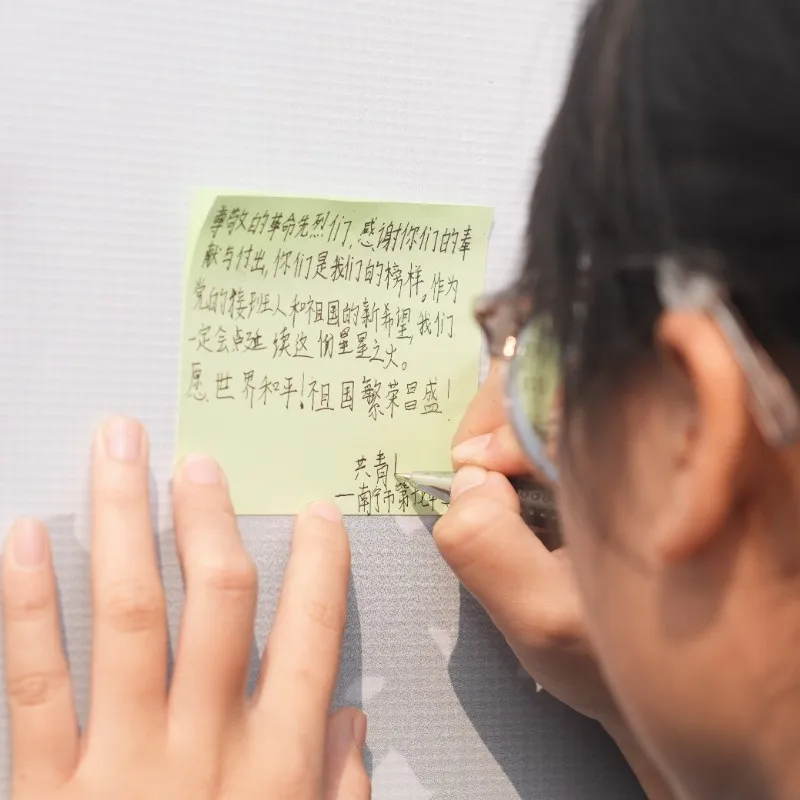 尊敬的革命先烈们,感谢你们的奉
献与付出,你们是我们的榜样。作为
党的接班人和祖国的新希望,我们
一定会点延续这份星星之火。
愿世界和平!祖国繁荣昌盛!
共青
—南宁市第